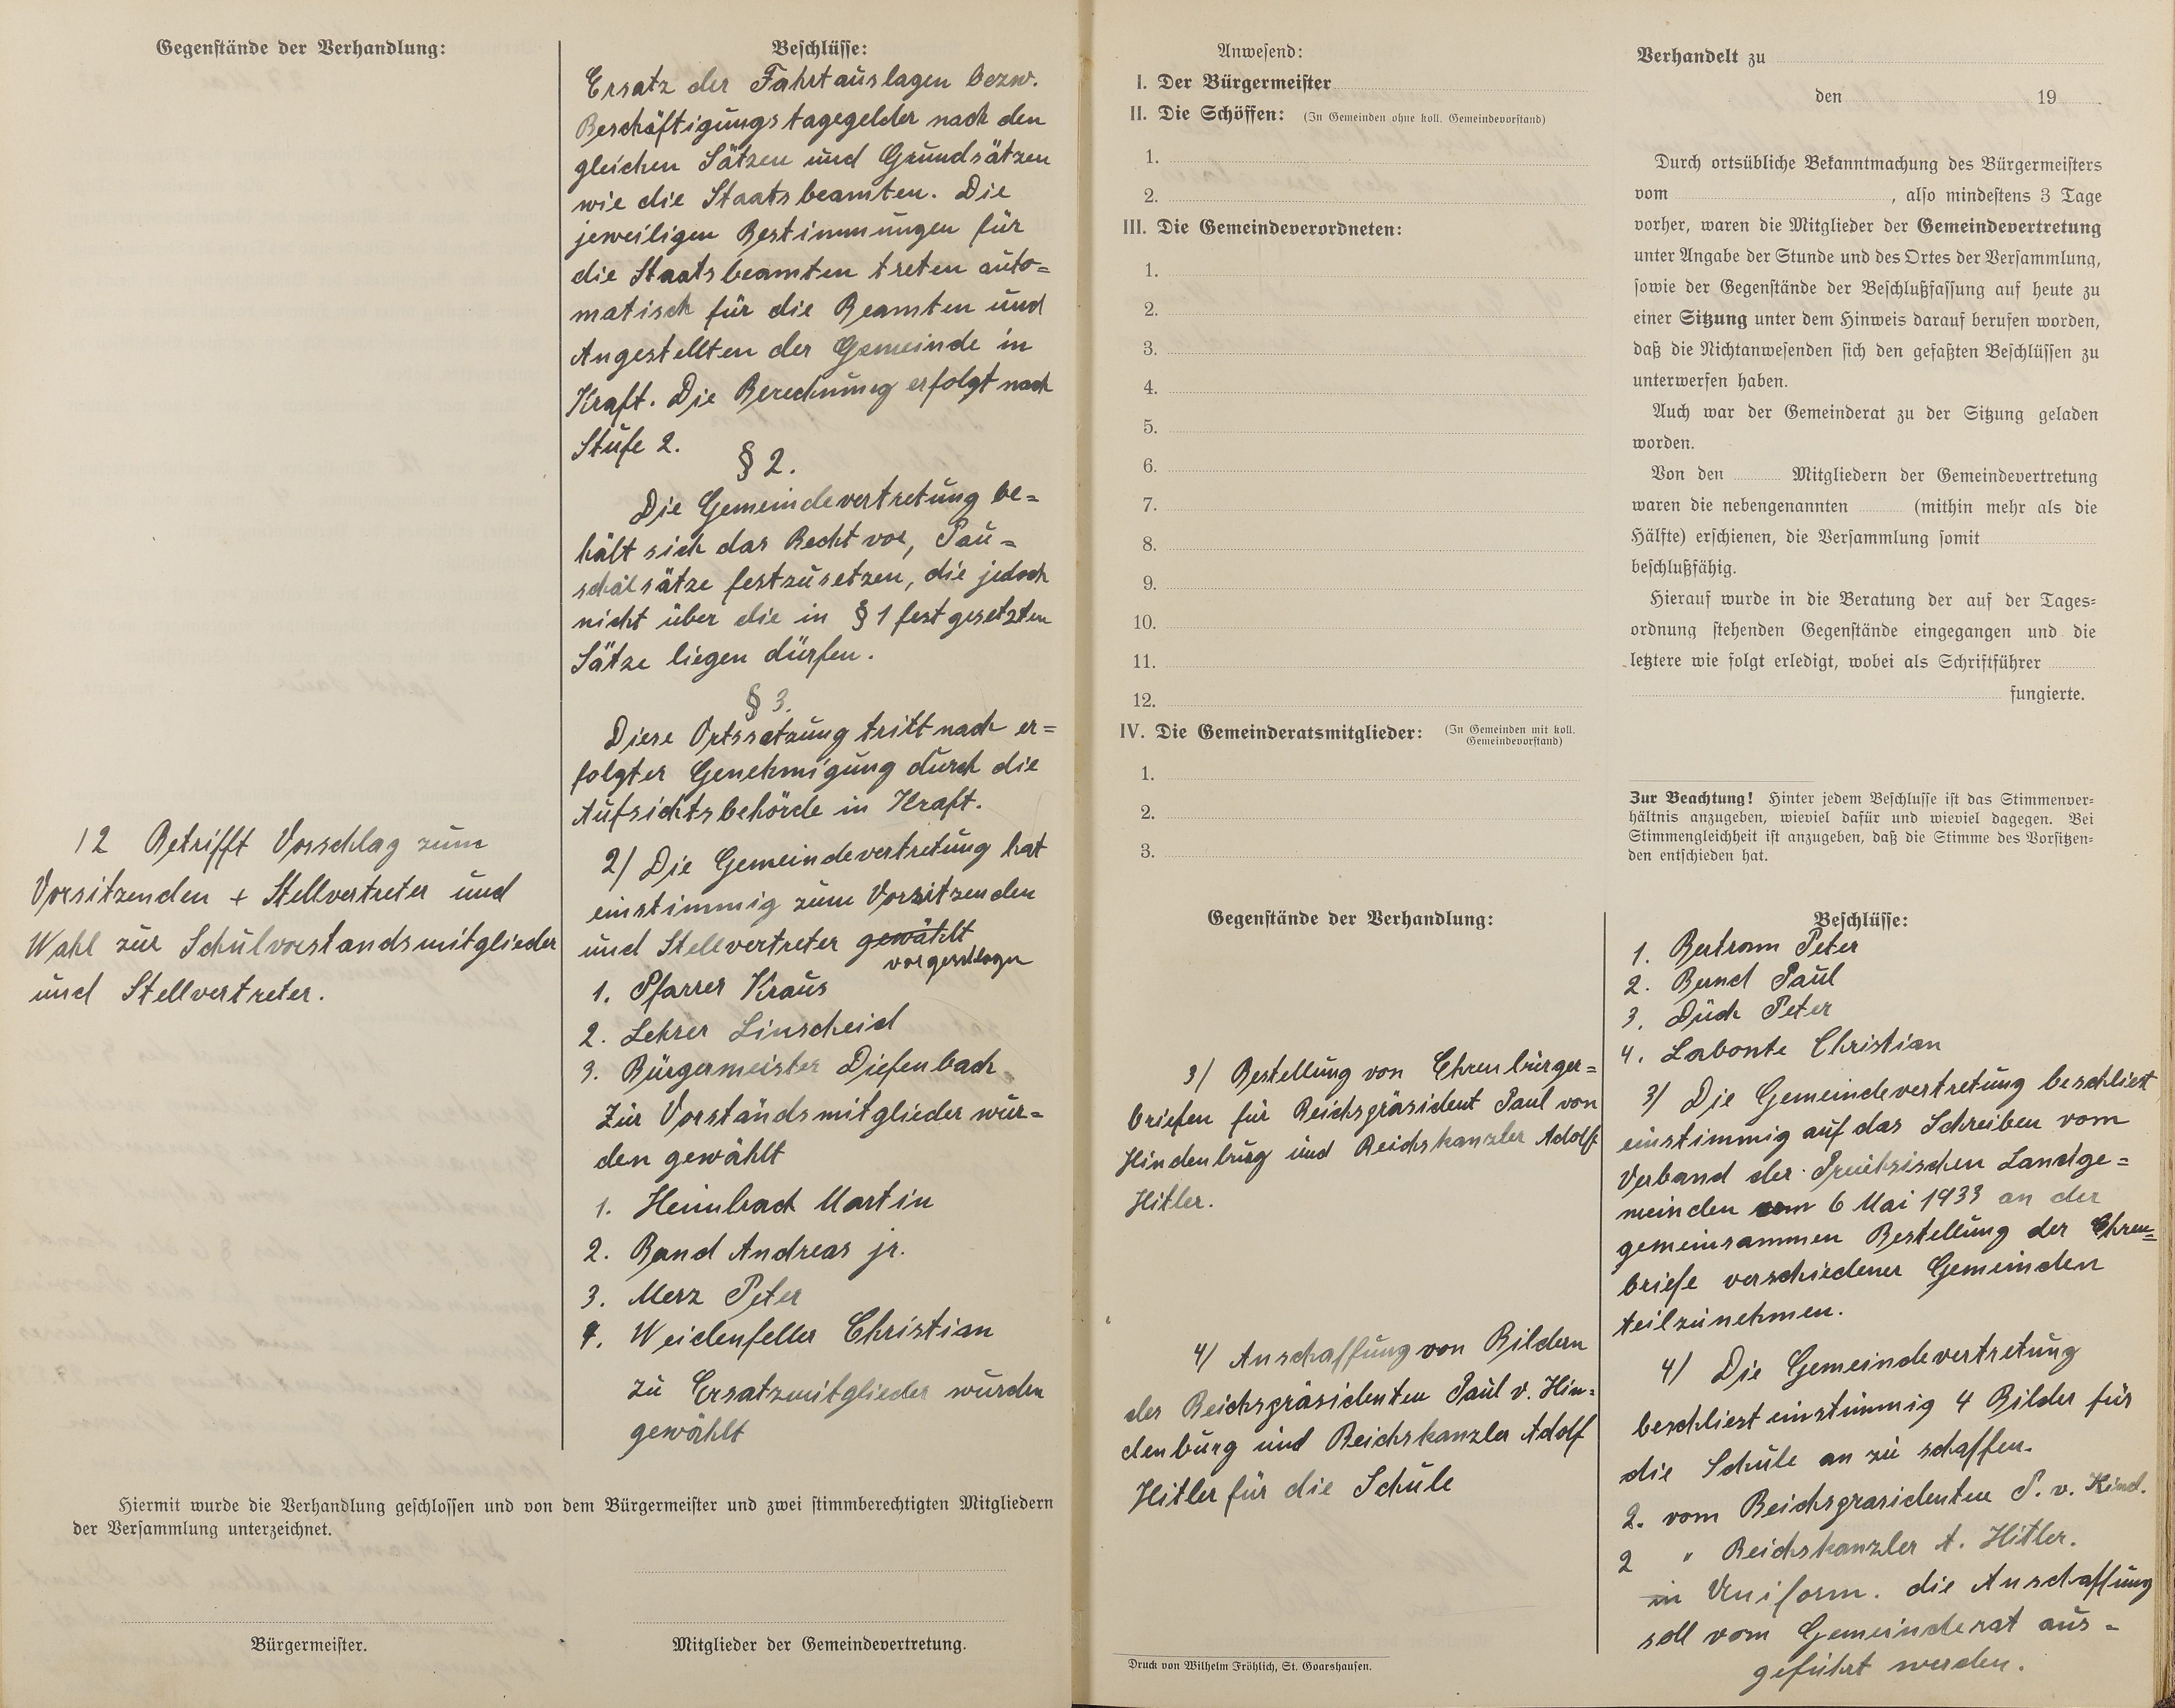 Gegenstände der Verhandlung:
12 Betrifft Vorschlag zum
Vorsitzenden + Stellvertreter und
Wahl zur Schulvorstandsmitglieder
und Stellvertreter.
Beschlüsse:
Ersatz der Fahrtauslagen bezw.
Beschäftigungstagegelder nach den
gleichen Sätzen und Grundsätzen
wie die Staatsbeamten. Die
jeweiligen Bestimmungen für
die Staatsbeamten treten auto=
matisch für die Beamten und
Angestellten der Gemeinde in
Kraft. Die Berechnung erfolgt nach
Stufe 2.
§ 2.
Die Gemeindevertretung be=
hält sich das Recht vor, Pau=
schalsätze festzusetzen, die jedoch
nicht über die in § 1 festgesetzten
Sätze liegen dürfen.
§ 3.
Diese Ortssatzung tritt nach er=
folgter Genehmigung durch die
Aufsichtsbehörde in Kraft.
2/ Die Gemeindevertretung hat
einstimmig zum Vorsitzenden
und Stellvertreter gewählt
vorgeschlagen
1. Pfarrer Kraus
2. Lehrer Linscheid
3. Bürgermeister Diefenbach
Zur Vorstandsmitglieder wur=
den gewählt
1. Heimbach Martin
2. Band Andreas jr.
3. Merz Peter
4. Weidenfeller Christian
zu Ersatzmitglieder wurden
gewählt
Hiermit wurde die Verhandlung geschlossen und von dem Bürgermeister und zwei stimmberechtigten Mitgliedern
der Versammlung unterzeichnet.
Bürgermeister.
Mitglieder der Gemeindevertretung.
Anwesend:
I. Der Bürgermeister
II. Die Schöffen: (In Gemeinden ohne koll. Gemeindevorstand)
1.
2.
III. Die Gemeindeverordneten:
1.
2.
3.
4.
5.
6.
7.
8.
9.
10.
11.
12.
IV. Die Gemeinderatsmitglieder: (In Gemeinden mit koll.
Gemeindevorstand)
1.
2.
3.
Verhandelt zu
den 19
Durch ortsübliche Bekanntmachung des Bürgermeisters
vom , also mindestens 3 Tage
vorher, waren die Mitglieder der Gemeindevertretung
unter Angabe der Stunde und des Ortes der Versammlung,
sowie der Gegenstände der Beschlußfassung auf heute zu
einer Sitzung unter dem Hinweis darauf berufen worden,
daß die Nichtanwesenden sich den gefaßten Beschlüssen zu
unterwerfen haben.
Auch war der Gemeinderat zu der Sitzung geladen
worden.
Von den Mitgliedern der Gemeindevertretung
waren die nebengenannten (mithin mehr als die
Hälfte) erschienen, die Versammlung somit
beschlußfähig.
Hierauf wurde in die Beratung der auf der Tages=
ordnung stehenden Gegenstände eingegangen und die
letztere wie folgt erledigt, wobei als Schriftführer
fungierte.
Zur Beachtung! Hinter jedem Beschlusse ist das Stimmenver=
hältnis anzugeben, wieviel dafür und wieviel dagegen. Bei
Stimmengleichheit ist anzugeben, daß die Stimme des Vorsitzen=
den entschieden hat.
Gegenstände der Verhandlung:
3/ Bestellung von Ehrenbürger=
briefen für Reichspräsident Paul von
Hindenburg und Reichskanzler Adolf
Hitler.
4/ Anschaffung von Bildern
des Reichspräsidenten Paul v. Hin=
denburg und Reichskanzler Adolf
Hitler für die Schule
Beschlüsse:
1. Bertram Peter
2. Bernd Paul
3. Düch Peter
4. Labonte Christian
3/ Die Gemeindevertretung beschliest
einstimmig auf das Schreiben vom
Verband der Preußischen Landge=
meinden vom 6 Mai 1933 an der
gemeinsammen Bestellung der Ehren=
briefe verschiedener Gemeinden
teilzunehmen.
4/ Die Gemeindevertretung
beschliest einstimmig 4 Bilder für
die Schule an zu schaffen.
2. vom Reichsprasidenten P. v. Hind.
2 " Reichskanzler A. Hitler.
in Uniform. die Anschaffung
soll vom Gemeinderat aus=
geführt werden.
Druck von Wilhelm Fröhlich, St. Goarshausen.